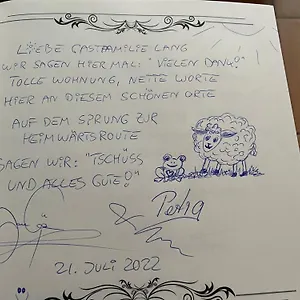 LIEBE GASTFAMILIE LANG
WIR SAGEN HIER MAL: "VIELEN DANK!"
TOLLE WOHNUNG, NETTE WORTE
HIER AN DIESEM SCHÖNEN ORTE
AUF DEM SPRUNG ZUR
HEIMWÄRTSROUTE
SAGEN WIR: "TSCHÜSS
UND ALLES GUTE!"
Petra
21. JULI 2022